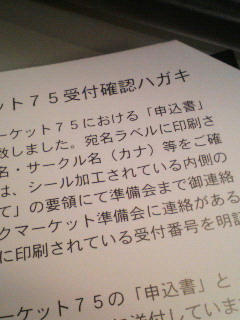 ット７５受付確認ハガキ
ーケット７５における「申込書」
致しました。宛名ラベルに印刷さ
名・サークル名（カナ）等をご確
は、シール加工されている内側の
て」の要領にて準備会まで御連絡
クマーケット準備会に連絡がある
に印刷されている受付番号を明記
ーケット７５の「申込書」と
送付していま